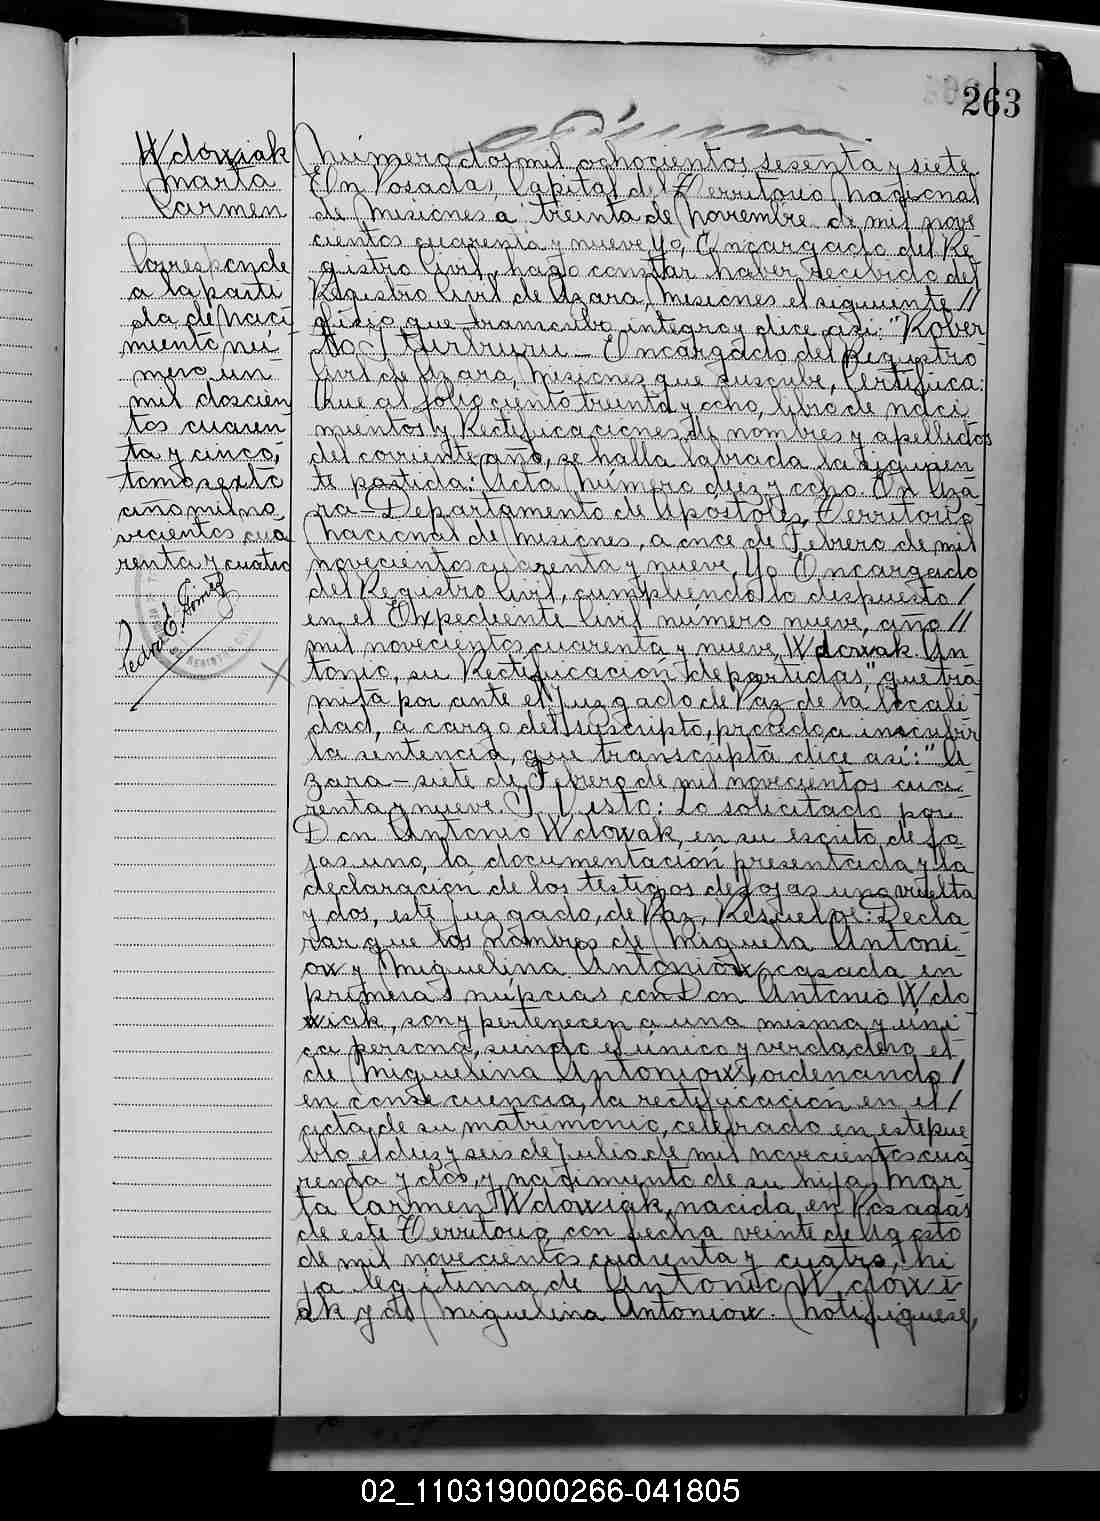 263
Wdowiak
Marta
Carmen
Corresponde
a la parti
da de naci
miento nú
mero un
mil doscien
tos cuaren
ta y cinco,
tomo sexto
año mil no
vecientos cua
renta y cuatro
Pedro E. Gómez
Número dos mil ochocientos sesenta y siete
En Posadas, Capital del Territorio Nacional
de Misiones a treinta de Noviembre de mil nove
cientos cuarenta y nueve, Yo, Encargado del Re-
gistro Civil, hago constar haber recibido del
Registro Civil de Azara, Misiones el siguiente //
oficio que transcribo integro y dice así: "Rober
to J. Iturburu - Encargado del Registro
Civil de Azara, Misiones que suscribe, Certifica:
Que al folio ciento treinta y ocho, libro de naci
mientos y Rectificaciones de nombres y apellidos
del corriente año, se halla labrada la siguien
te partida: Acta Número diez y ocho. En Aza
ra - Departamento de Apóstoles, Territorio
Nacional de Misiones, a once de Febrero de mil
novecientos cuarenta y nueve, Yo Encargado
del Registro Civil, cumpliendo lo dispuesto /
en el Expediente Civil número nueve, año //
mil novecientos cuarenta y nueve, Wdowiak An
tonio, su Rectificación de partidas," que tra
mita por ante el Juzgado de Paz de la locali
dad, a cargo del suscripto, procedo a inscribir
la sentencia, que transcripta dice así: "A-
zara - siete de Febrero de mil novecientos cua-
renta y nueve. Y Visto: Lo solicitado por
Don Antonio Wdowiak, en su escrito de fo-
jas uno, la documentación presentada y la
declaración de los testigos de fojas uno vuelta
y dos, este Juzgado, de Paz, Resuelve: Decla
rar que los nombres de Miguela Antoni-
ow y Miguelina Antoniow, casada en
primeras nupcias con Don Antonio Wdo
wiak, son y pertenecen a una misma y úni-
ca persona, siendo el único y verdadero el
de Miguelina Antoniow, ordenando /
en consecuencia, la rectificación en el /
acta de su matrimonio, celebrado en este pue
blo el diez y seis de Julio de mil novecientos cua
renta y dos, y nacimiento de su hija Mar
ta Carmen Wdowiak, nacida en Posadas
de este Territorio, con fecha veinte de Agosto
de mil novecientos cuarenta y cuatro, hi
ja legítima de Antonio Wdowi
ak y de Miguelina Antoniow. Notifíquese,
02_110319000266-041805